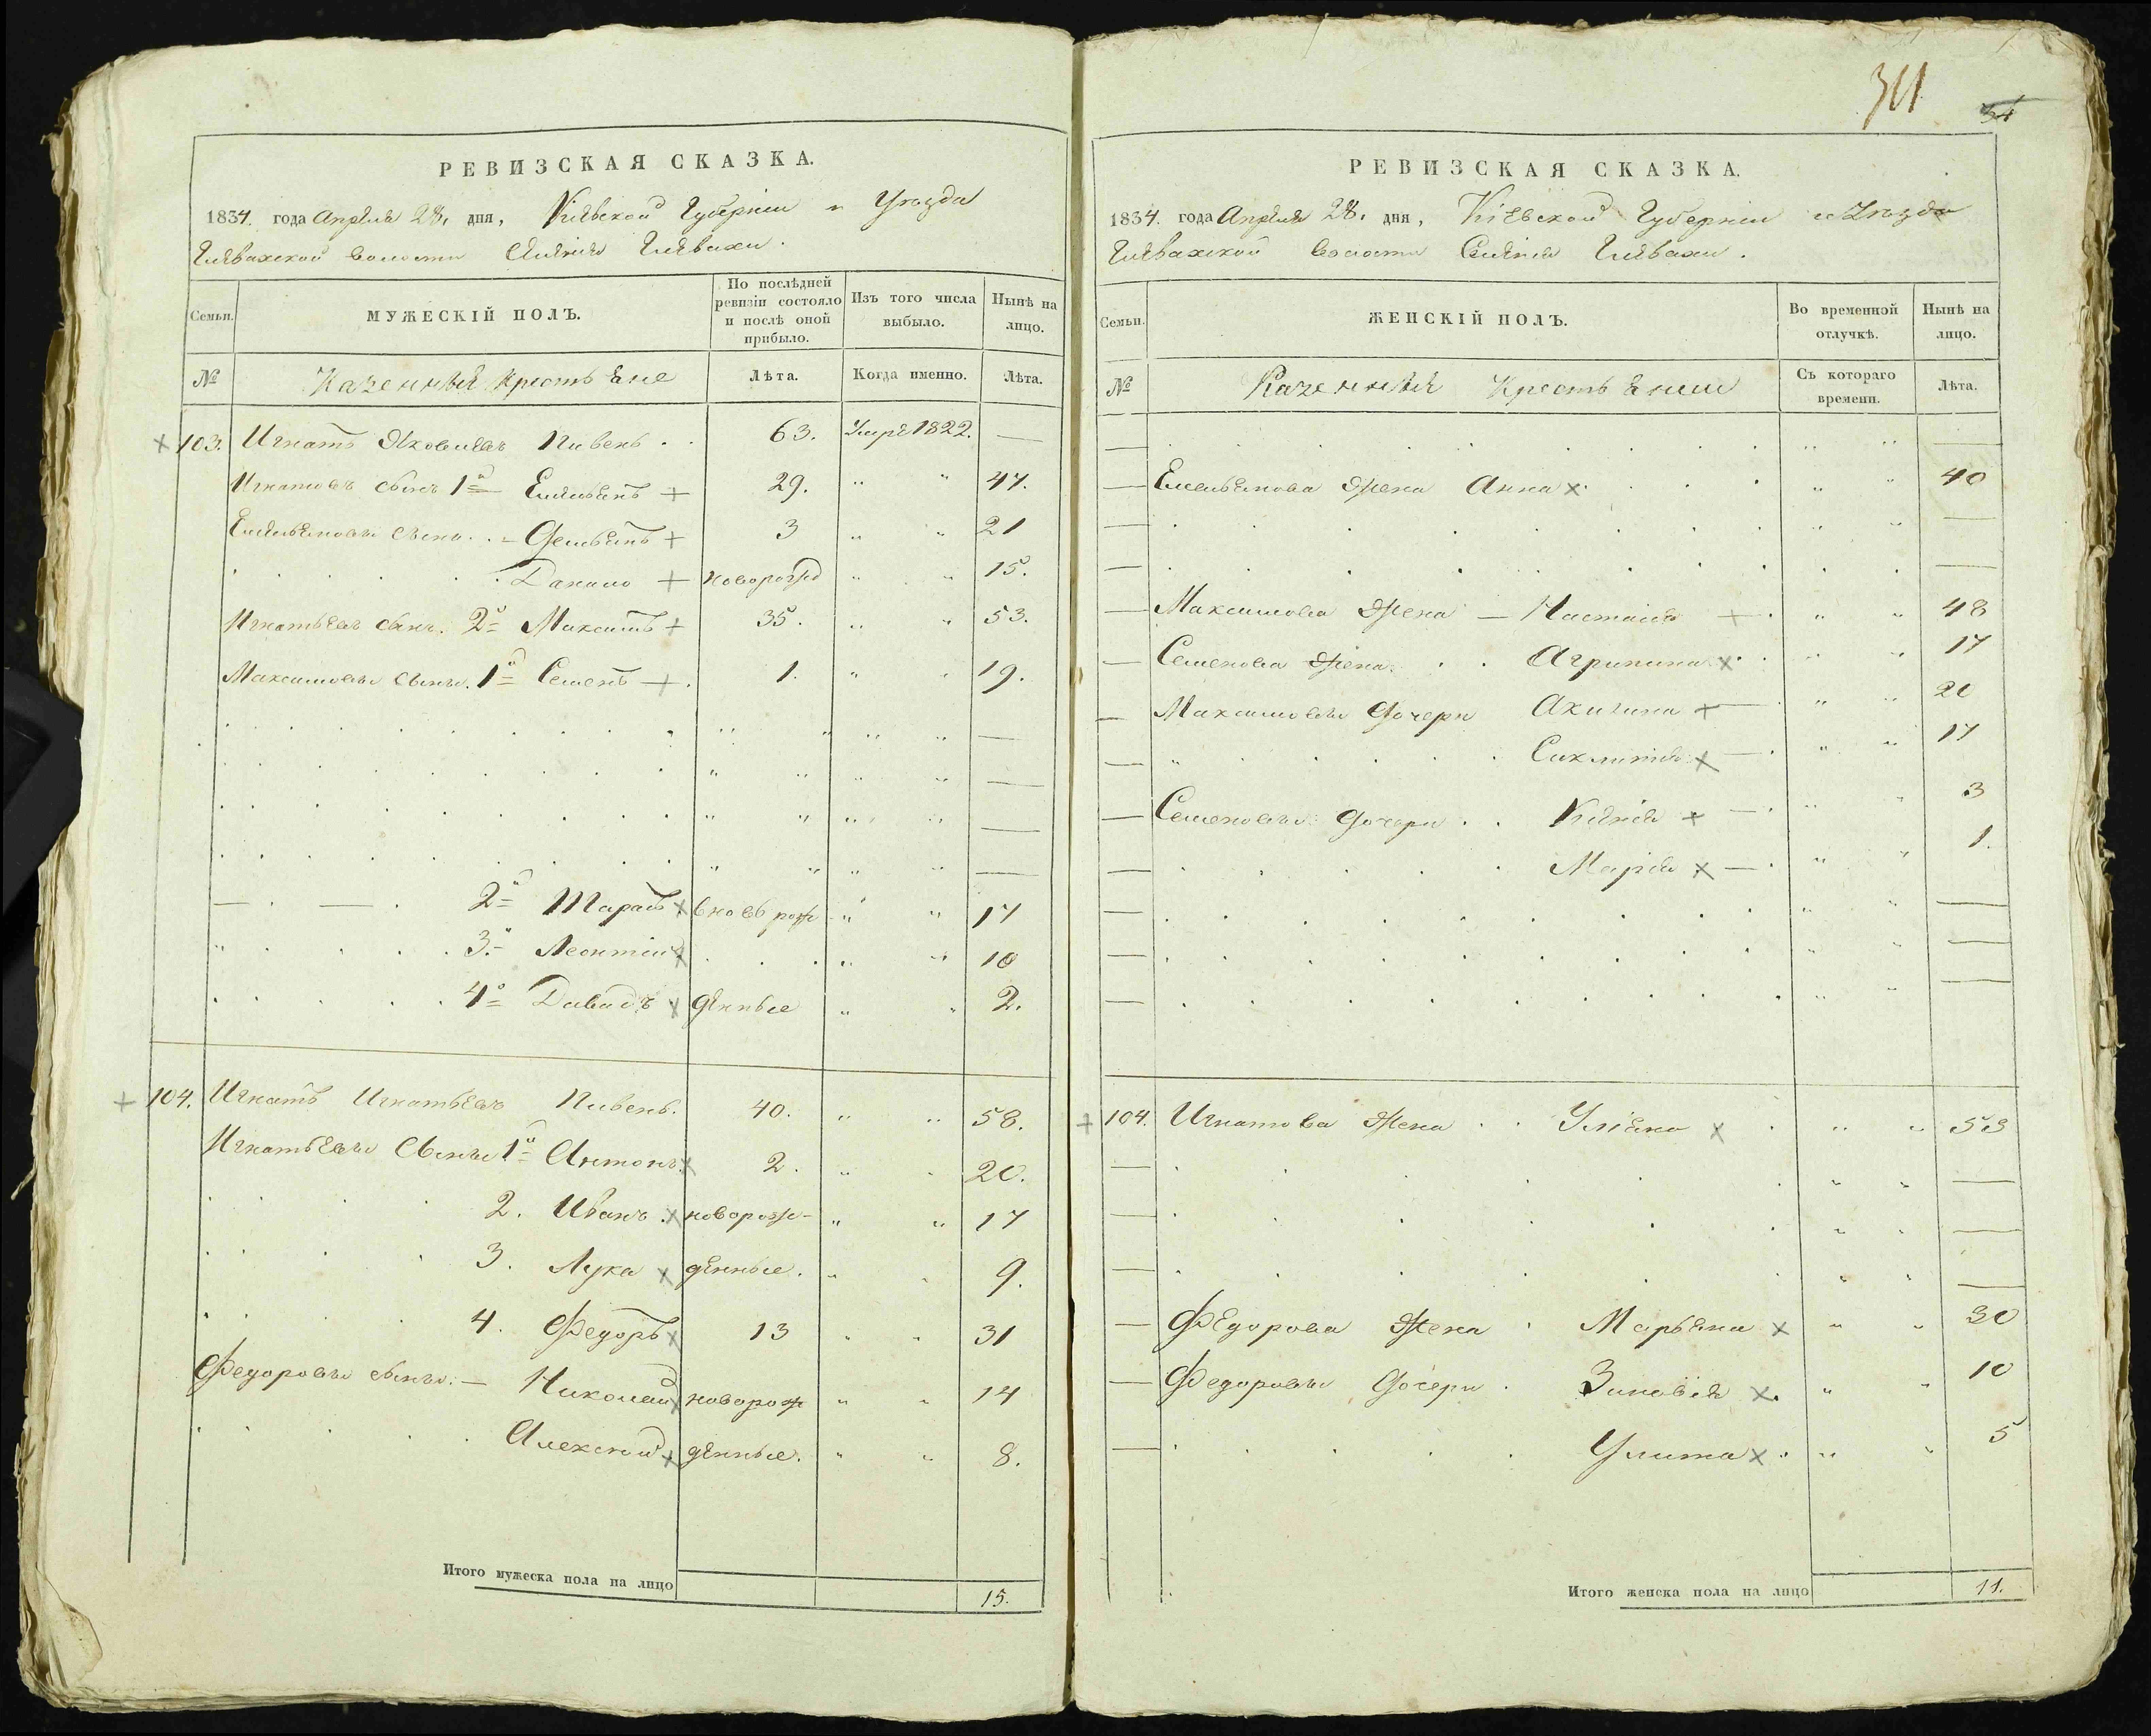 РЕВИЗСКАЯ СКАЗКА.
1834. года Апреля 28. дня, Киевской Губернiи и Уезда
Глевахской Волости Селенiя Глевахи.
Семьи.
МУЖЕСКІЙ ПОЛЪ.
По послѣдней ревизіи состояло и послѣ оной прибыло.
Изъ того числа выбыло.
Нынѣ на лицо.
№ Казенныя крестьяне Лѣта. Когда именно. Лѣта.
103. Игнатъ Яковлевъ Пивень 63. Умре 1822. —
Игнатовъ сынъ 1й Емельянъ 29. " " 47.
Емельяновы сыны Демьянъ 3 " " 21
Данило новорожд " " 15.
Игнатьевъ сынъ. 2й Максимъ 35. " " 53.
Максимовы сыны. 1й Семенъ 1. " " 19.
2й Тарасъ вновь рож " " 17
3й Леонтiй " " 10
4й Давидъ денные " " 2.
104. Игнатъ Игнатьевъ Пивень. 40. " " 58.
Игнатьевы Сыны 1й Антонъ 2. " " 20.
2. Иванъ новорож- " " 17
3. Лука денные. " " 9.
4. Федоръ 13 " " 31
Федоровы сыны. — Николай новорож " " 14
Алексей денные. " " 8.
Итого мужеска пола на лицо 15.
311
34
РЕВИЗСКАЯ СКАЗКА.
1834. года Апреля 28. дня, Кiевской Губернiи и Уезда
Глевахской Волости Селенiя Глевахи.
Семьи.
ЖЕНСКІЙ ПОЛЪ.
Во временной отлучкѣ.
Нынѣ на лицо.
№ Казенныя Крестьянки Съ котораго времени. Лѣта.
— Емельянова Жена Анна " " 40
— Максимова Жена — Настасiя " " 48
— Семенова Жена Агрипина " " 17
— Максимовы Дочери Акилина " " 20
— Сиклитiя " " 17
— Семеновы Дочери Ксенiя " " 3
— Марiя " " 1.
104. Игнатова Жена Улiяна " " 53
— Федорова Жена Марьяна " " 30
— Федоровы Дочери Зиновiя " " 10
— Улита " " 5
Итого женска пола на лицо 11.